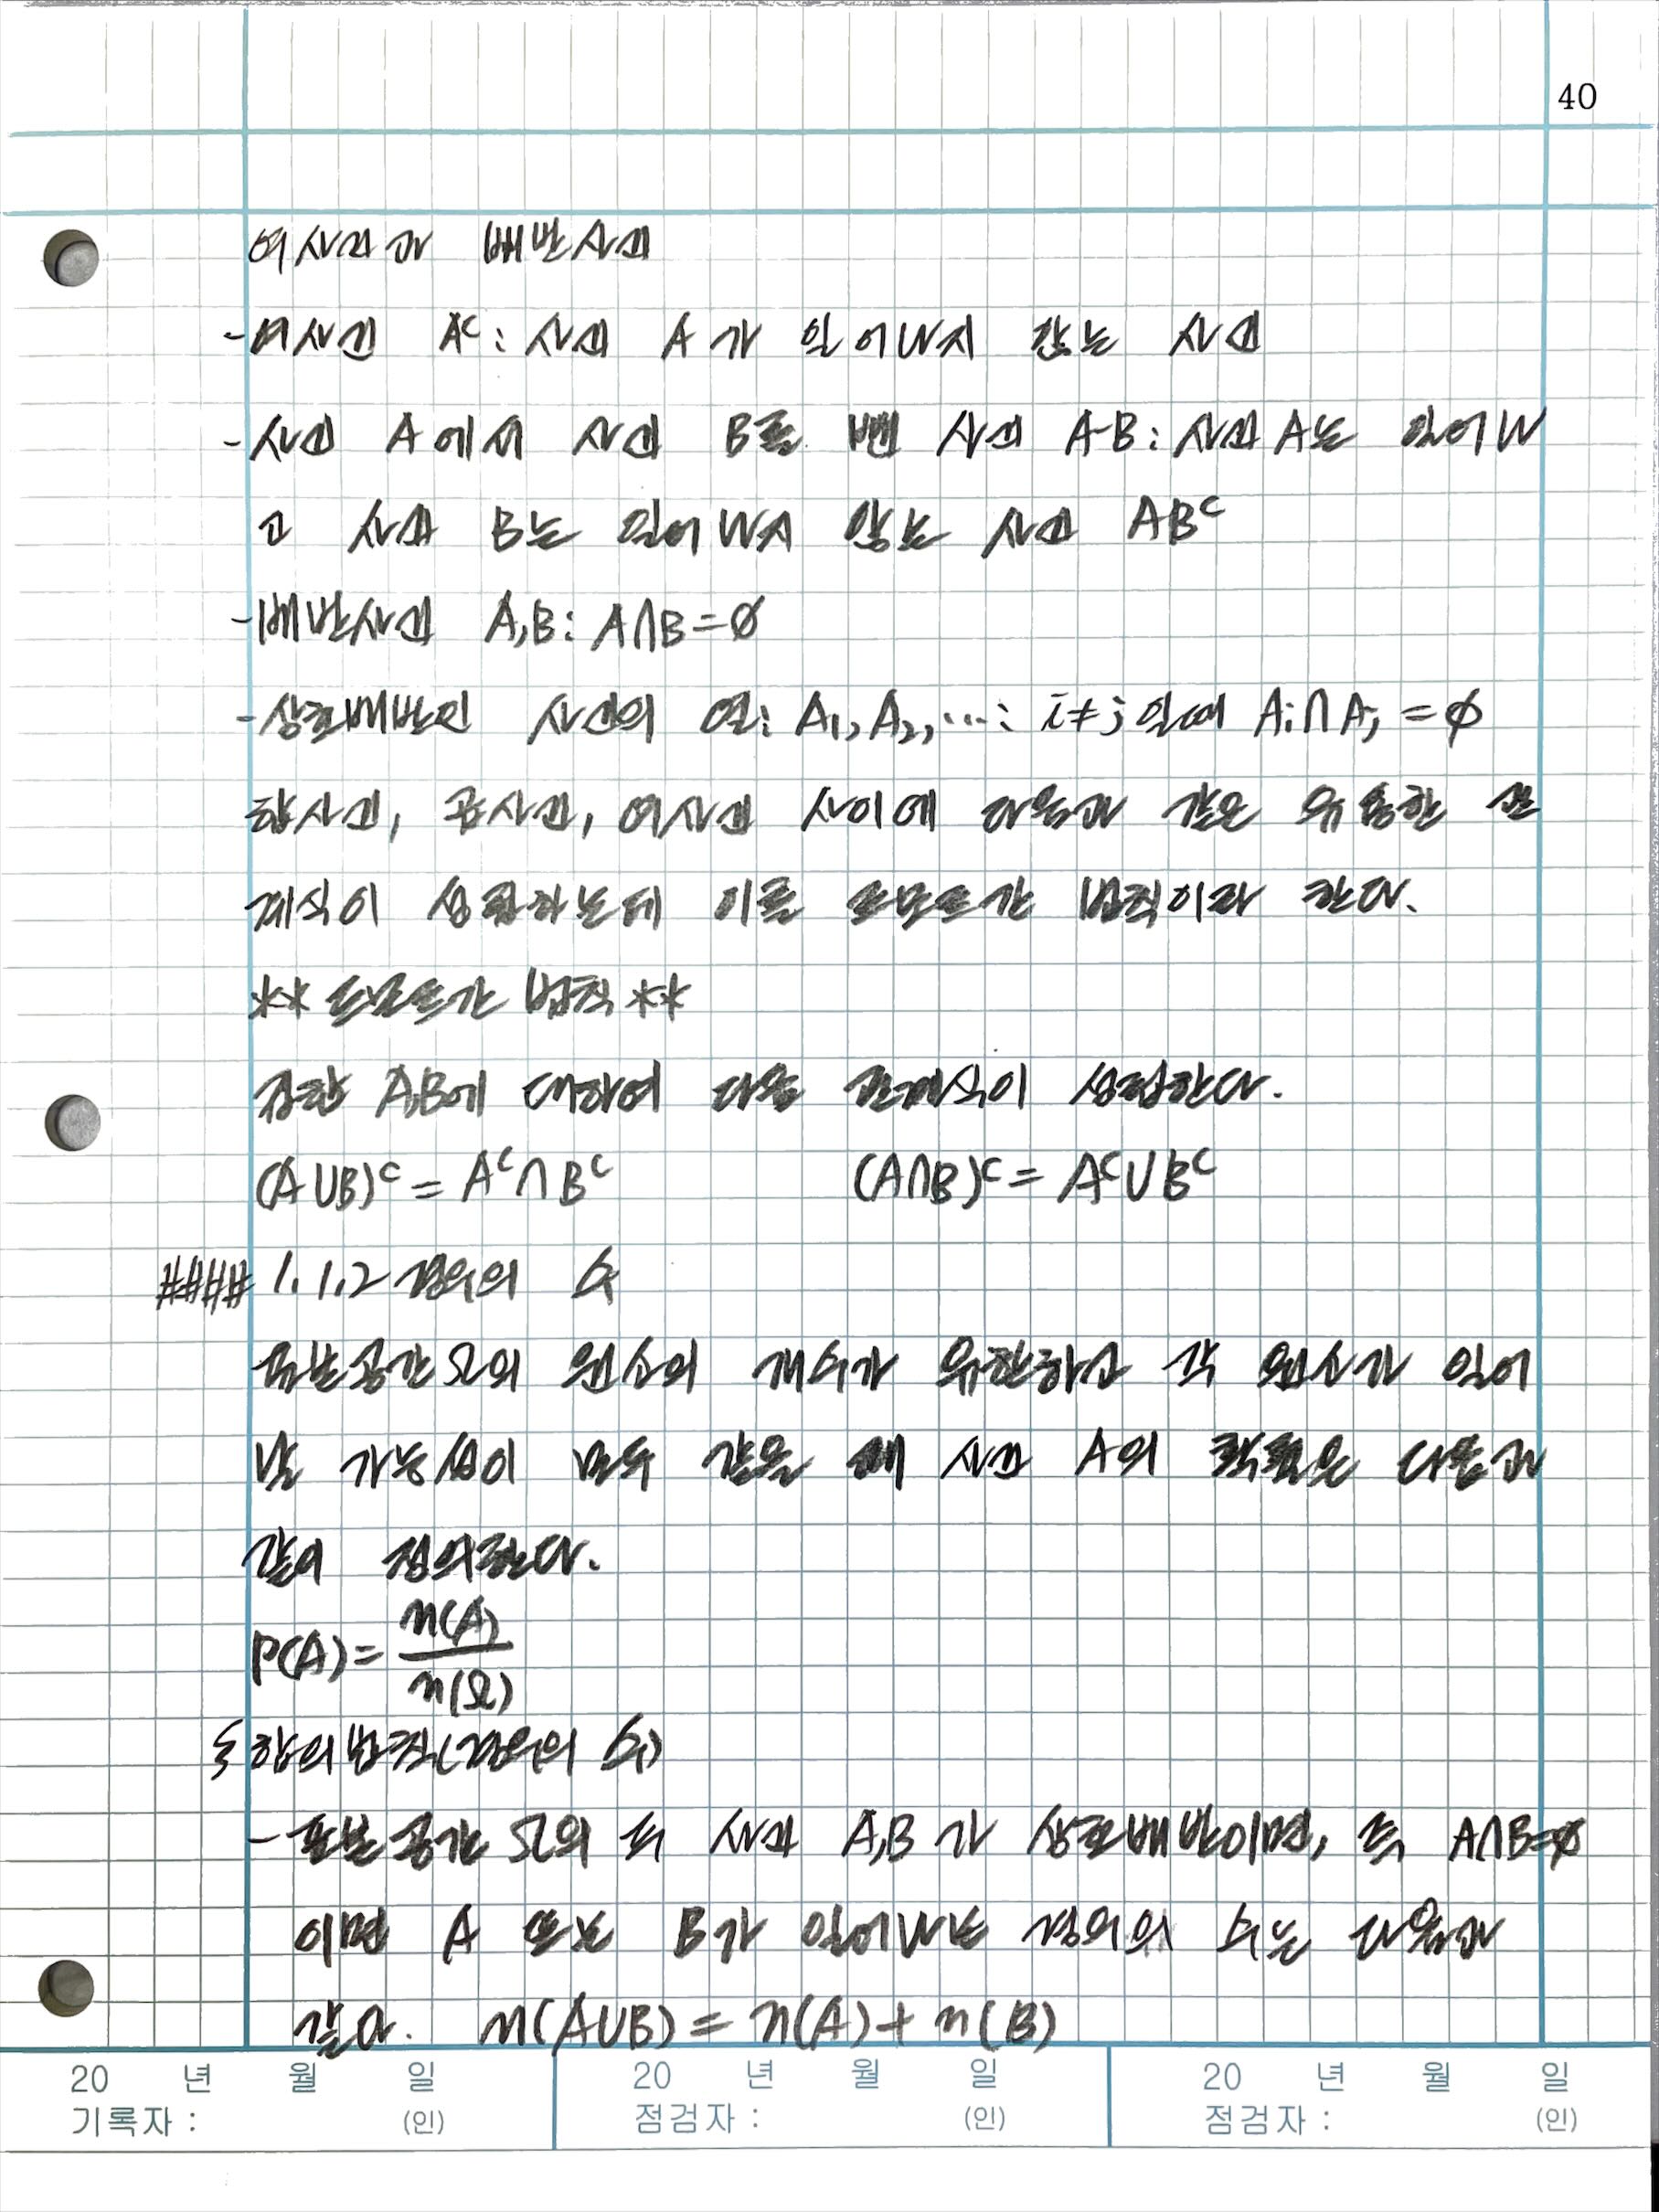 40
여사건과 배반사건
-여사건 Aᶜ: 사건 A가 일어나지 않는 사건
-사건 A에서 사건 B를 뺀 사건 A-B: 사건 A는 일어나
고 사건 B는 일어나지 않는 사건 ABᶜ
-배반사건 A,B: A∩B=∅
-상호배반인 사건의 열: A₁, A₂, ⋯: i≠j일때 Aᵢ∩Aⱼ=∅
합사건, 곱사건, 여사건 사이에 다음과 같은 유용한 관
계식이 성립하는데 이를 드모르간 법칙이라 한다.
**드모르간 법칙**
집합 A,B에 대하여 다음 관계식이 성립한다.
(A∪B)ᶜ = Aᶜ∩Bᶜ (A∩B)ᶜ = Aᶜ∪Bᶜ
#### 1.1.2 경우의 수
표본공간 Ω의 원소의 개수가 유한하고 각 원소가 일어
날 가능성이 모두 같을 때 사건 A의 확률은 다음과
같이 정의한다.
P(A) = n(A)/n(Ω)
합의법칙(경우의 수)
-표본공간 Ω의 두 사건 A,B가 상호배반이면, 즉 A∩B=∅
이면 A 또는 B가 일어나는 경우의 수는 다음과
같다. n(A∪B) = n(A)+n(B)
20 년 월 일 20 년 월 일 20 년 월 일
기록자 : (인) 점검자 : (인) 점검자 : (인)